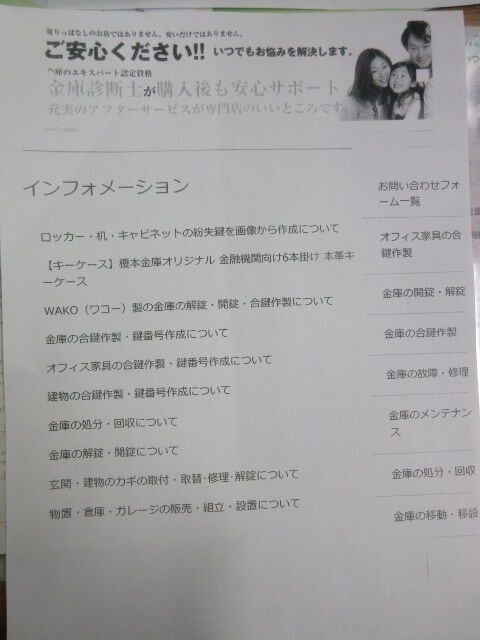 売りっぱなしのお店ではありません。安いだけではありません。
ご安心ください!! いつでもお悩みを解決します。
金庫のエキスパート認定資格
金庫診断士が購入後も安心サポート
充実のアフターサービスが専門店のいいところです
インフォメーション
ロッカー・机・キャビネットの紛失鍵を画像から作成について
【キーケース】榎本金庫オリジナル 金融機関向け6本掛け 本革キ
ーケース
WAKO（ワコー）製の金庫の解錠・開錠・合鍵作製について
金庫の合鍵作製・鍵番号作成について
オフィス家具の合鍵作製・鍵番号作成について
建物の合鍵作製・鍵番号作成について
金庫の処分・回収について
金庫の解錠・開錠について
玄関・建物のカギの取付・取替･修理･解錠について
物置・倉庫・ガレージの販売・組立・設置について
お問い合わせフォ
ーム一覧
オフィス家具の合
鍵作製
金庫の開錠・解錠
金庫の合鍵作製
金庫の故障・修理
金庫のメンテナン
ス
金庫の処分・回収
金庫の移動・移設